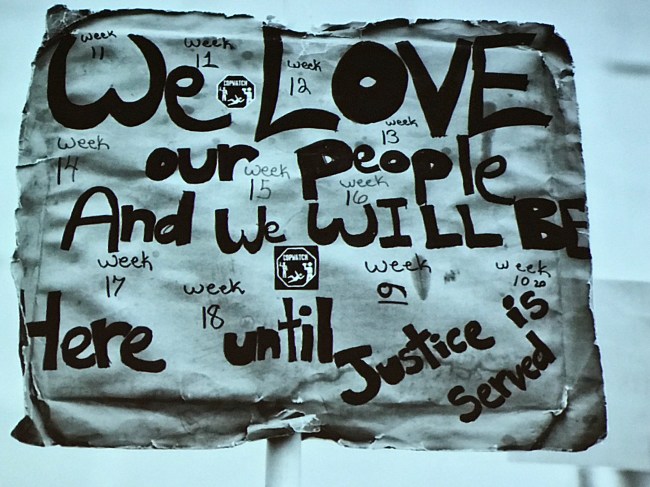 week 11
week 11
week 12
We LOVE
COPWATCH
week 13
week 14
our people
week 15
week 16
And we WILL BE
COPWATCH
week 17
week 18
week 19
week 10 20
Here until Justice is
Served